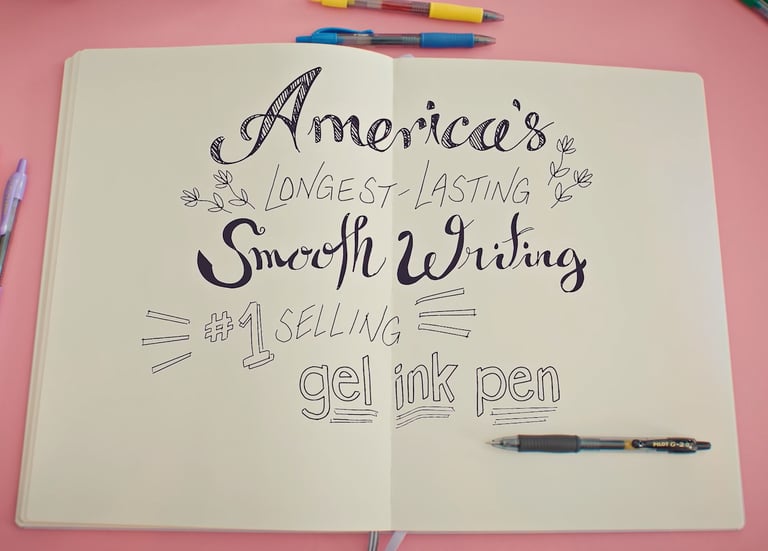 America's
LONGEST-LASTING
Smooth Writing
#1 SELLING
gel ink pen
PILOT G-2